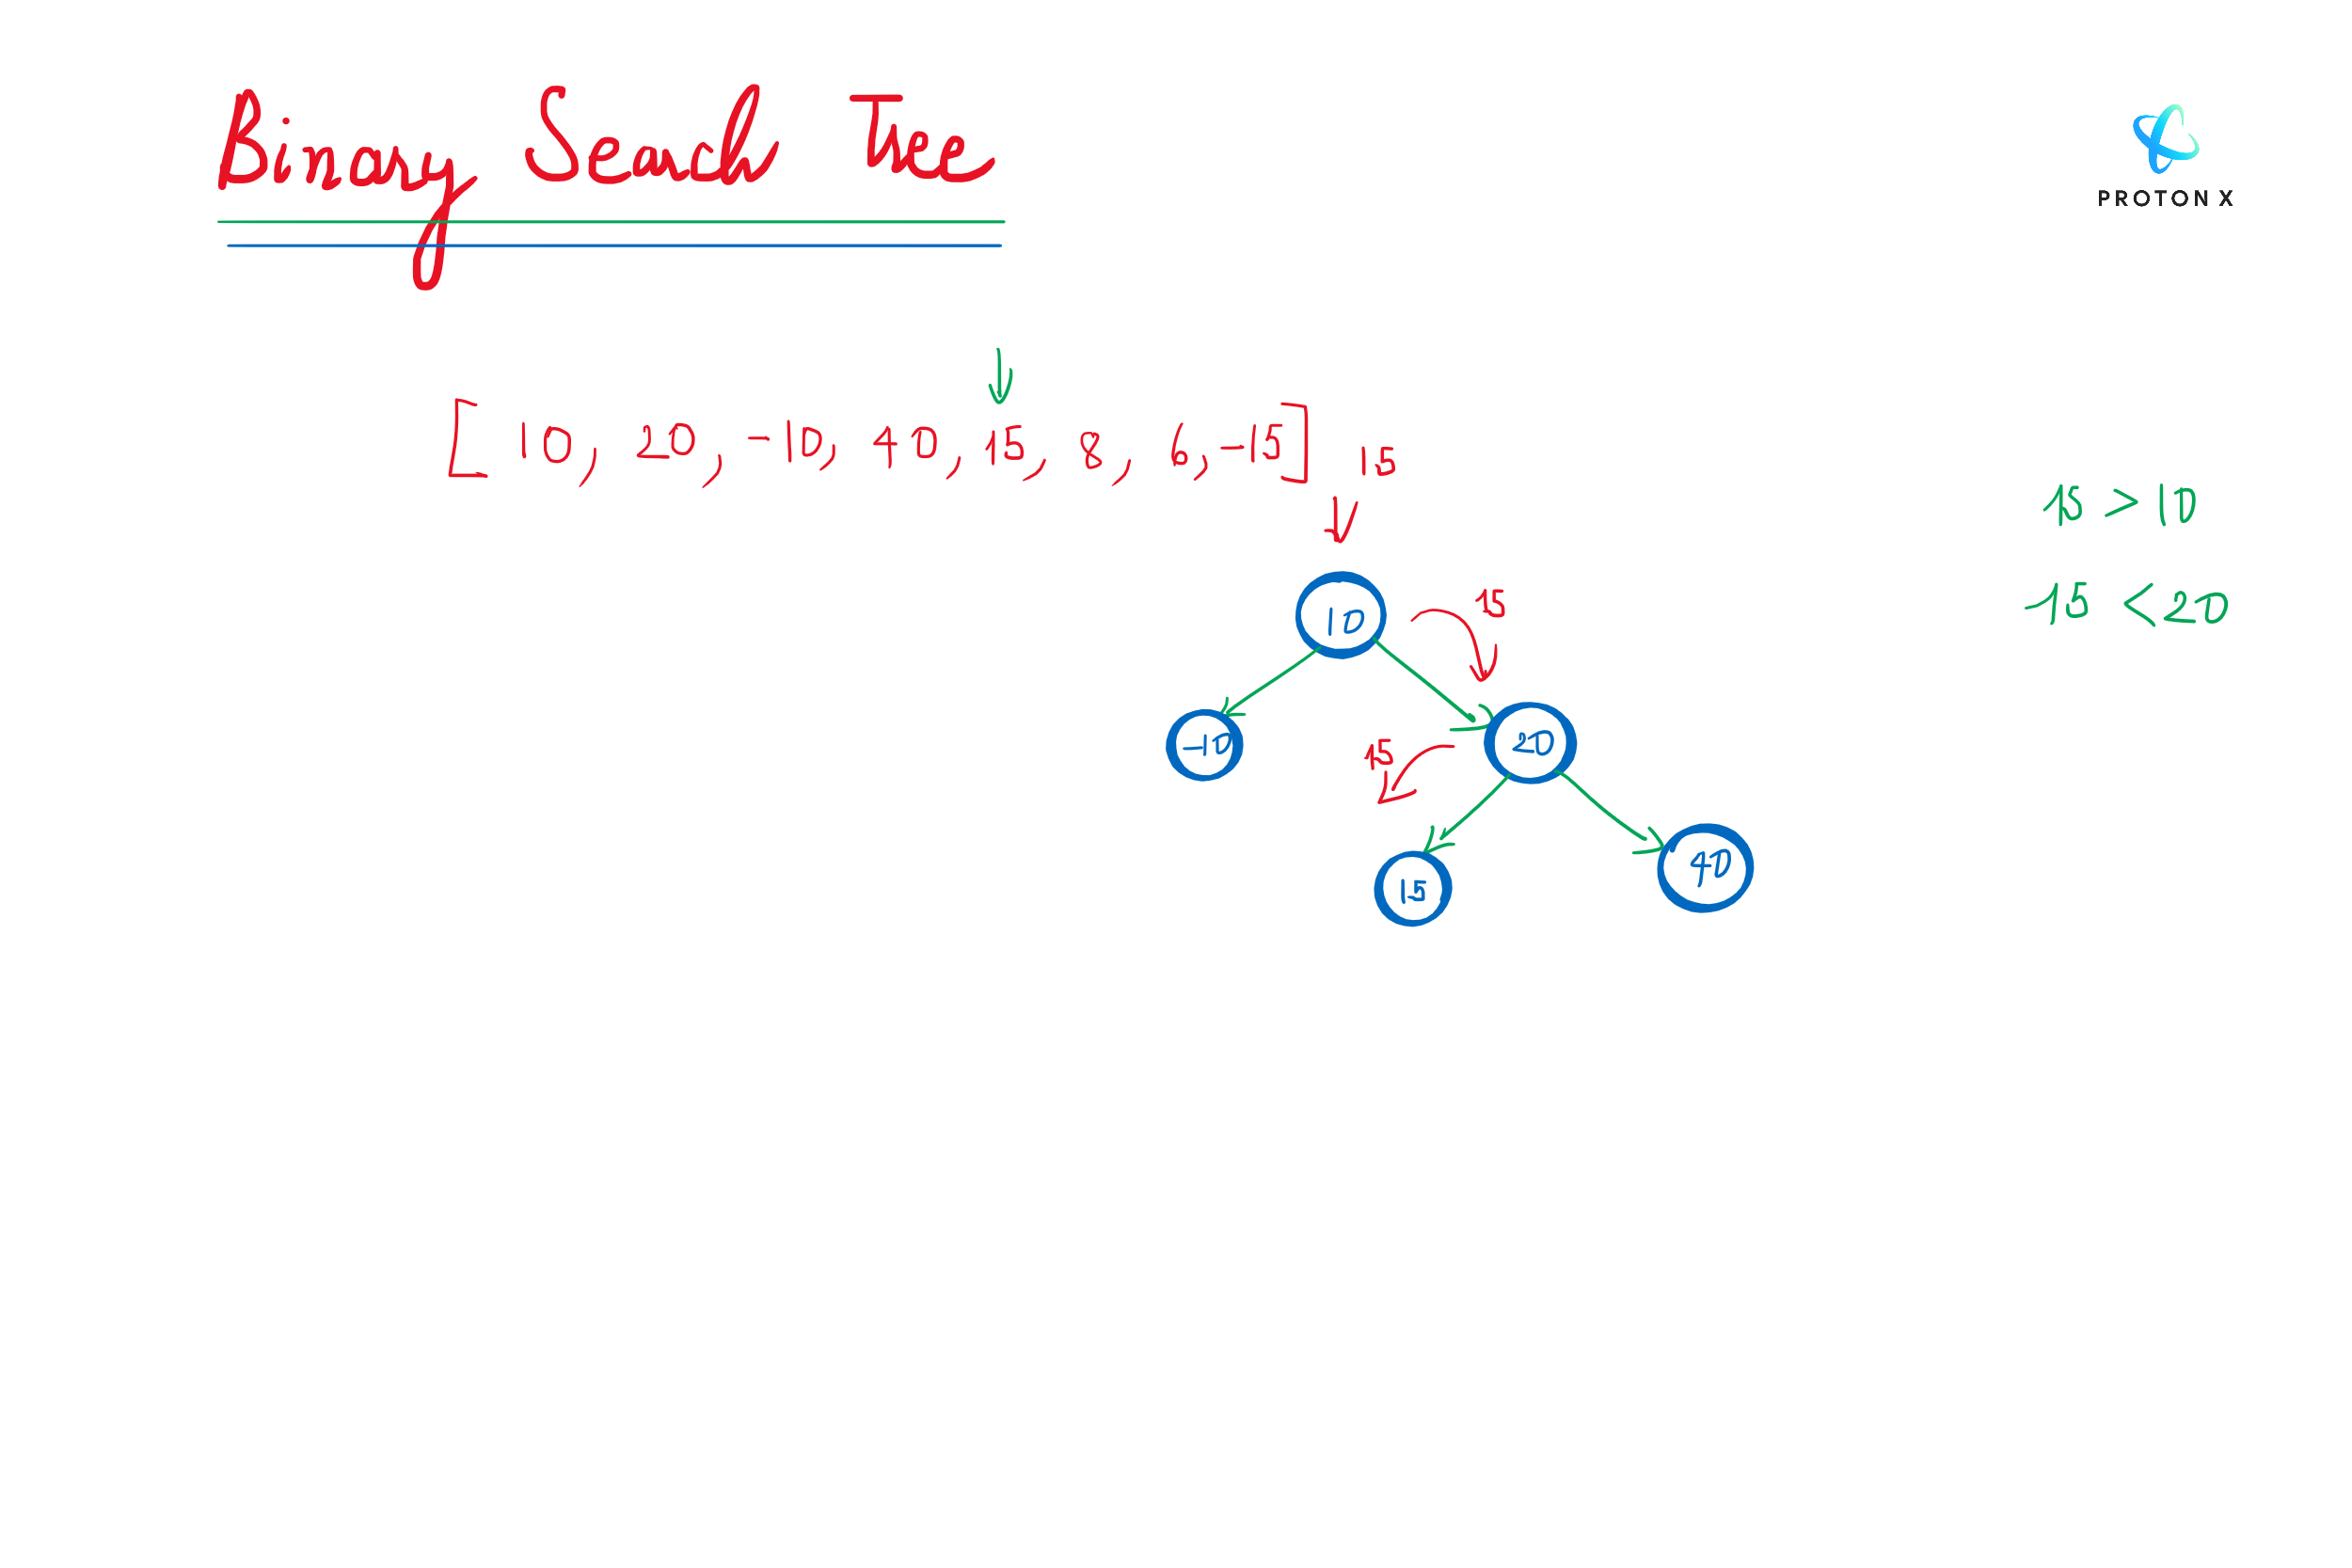 Binary Search Tree
PROTON X
[ 10, 20, -10, 40, 15, 8, 6, -15 ]
15
15 > 10
15 < 20
10
15
-10
20
15
15
40